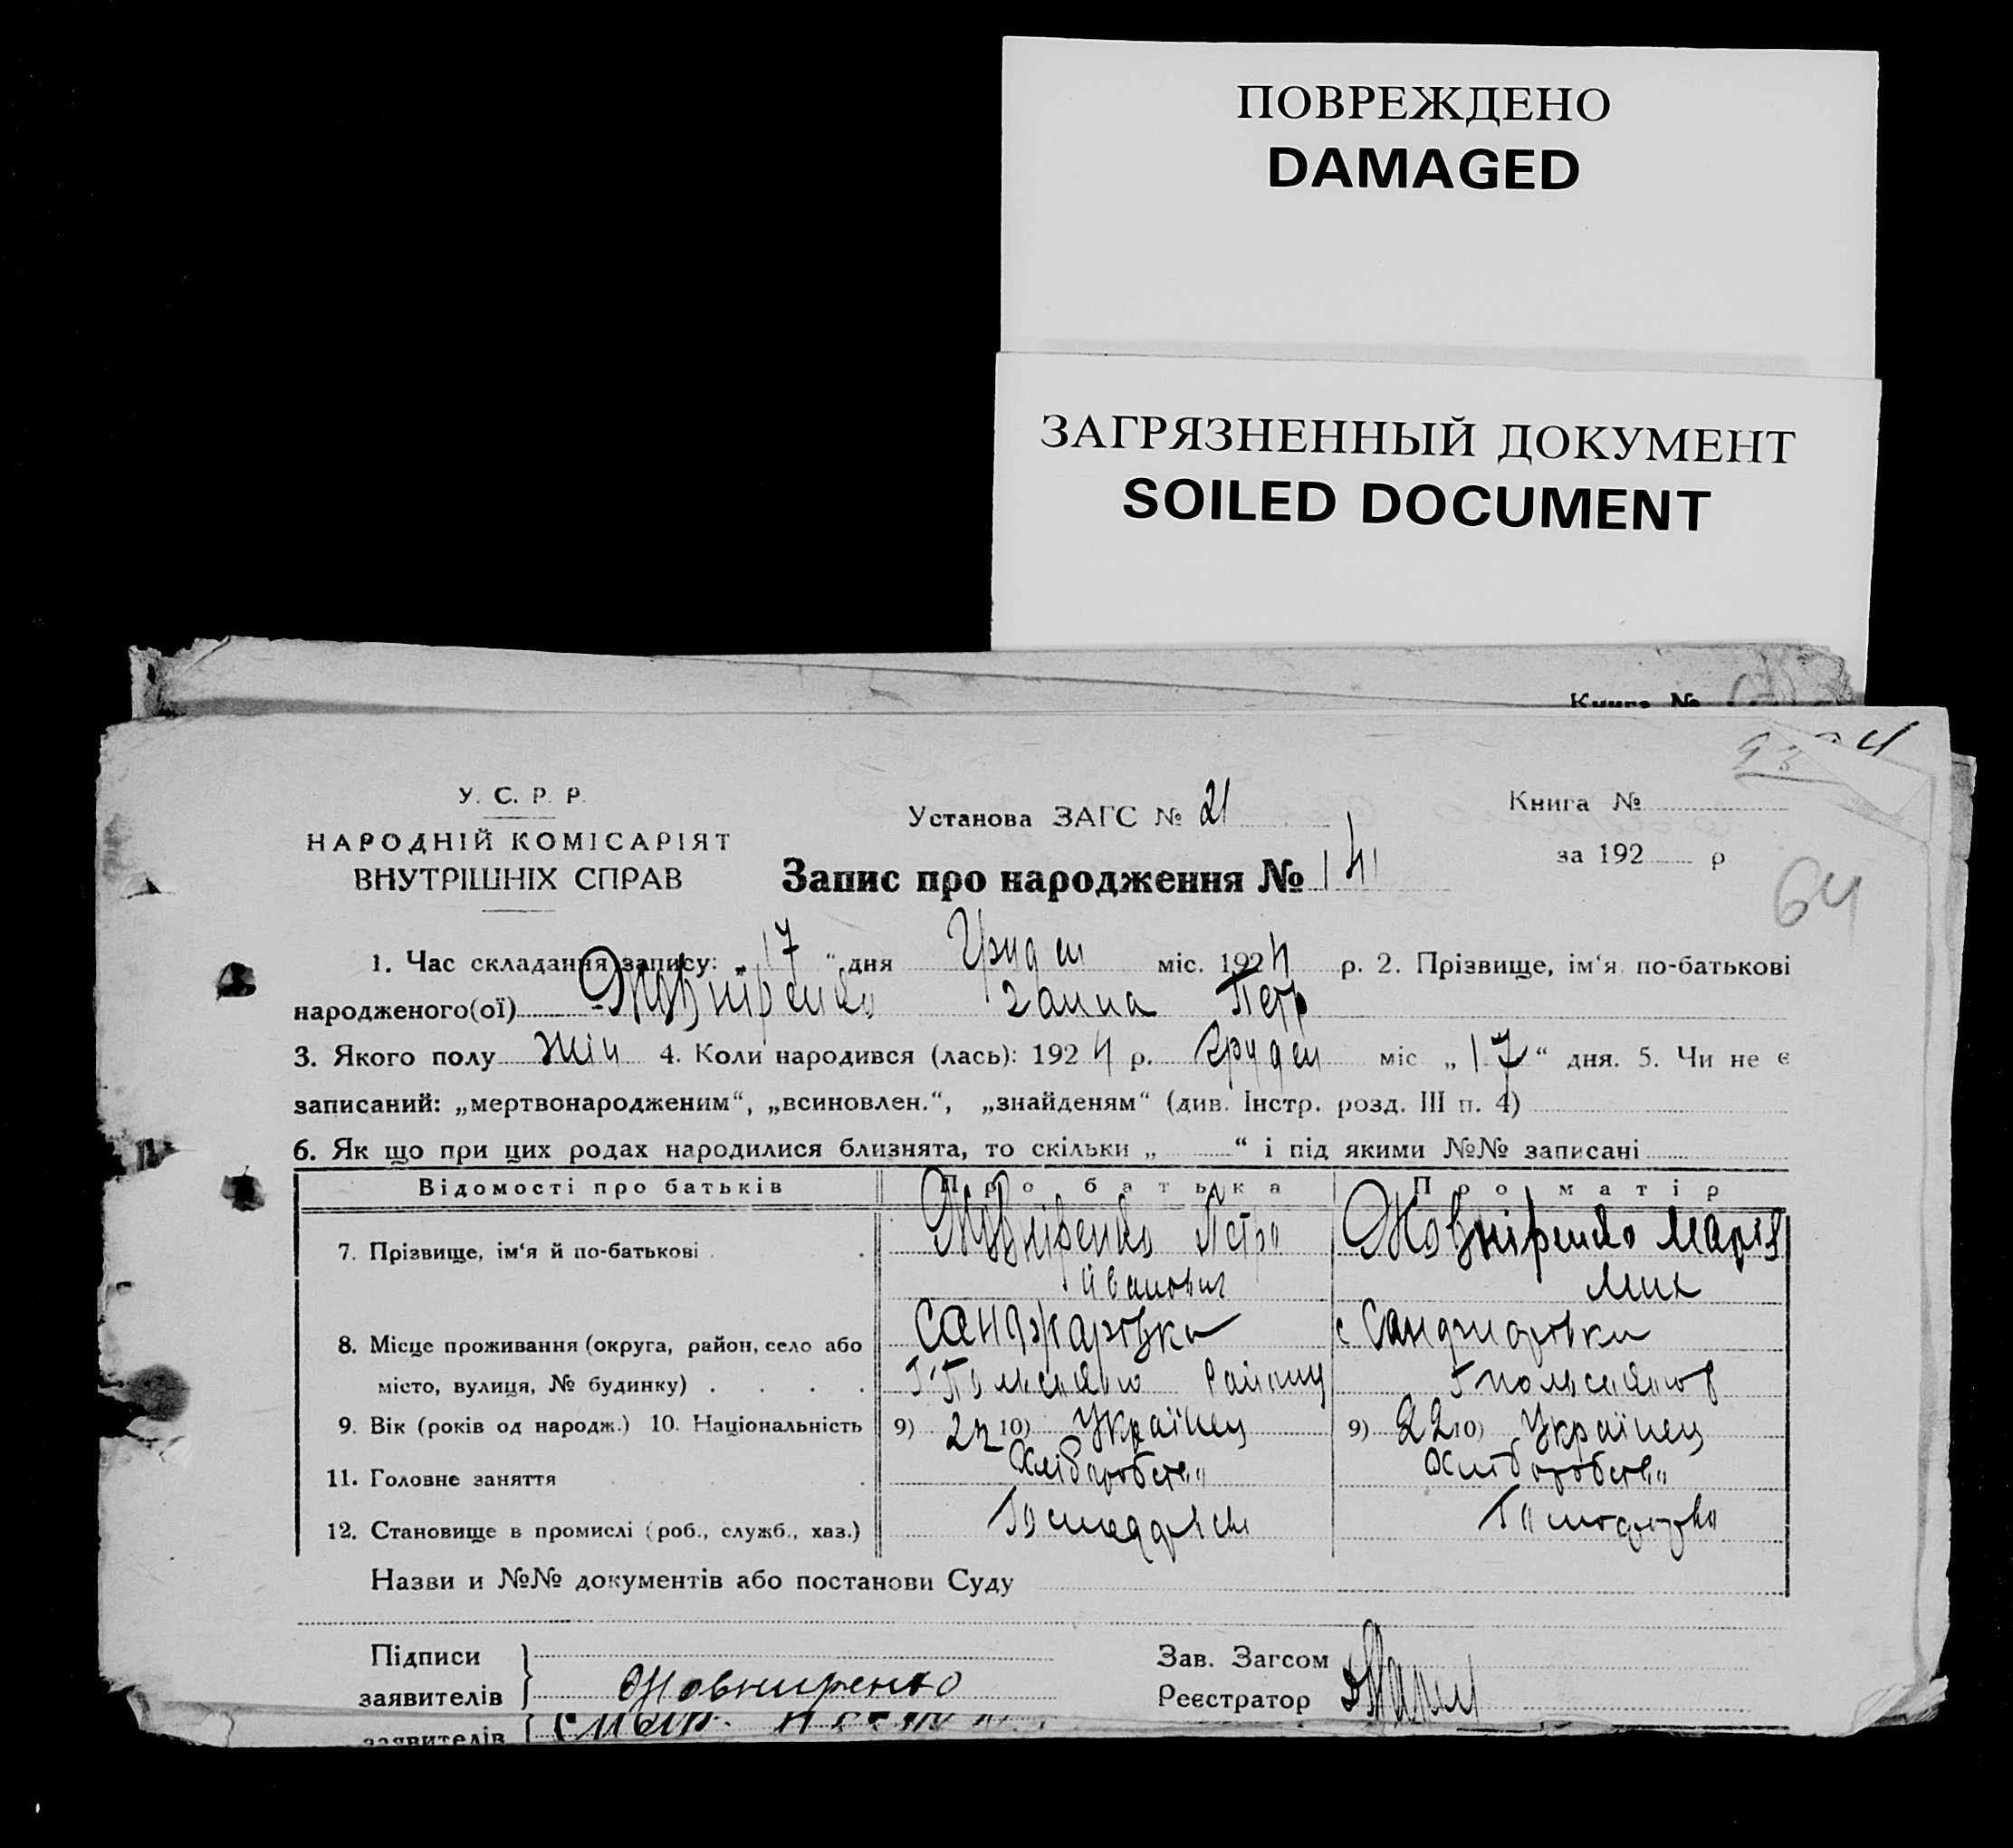 ПОВРЕЖДЕНО
DAMAGED
ЗАГРЯЗНЕННЫЙ ДОКУМЕНТ
SOILED DOCUMENT
Книга №
У. С. Р. Р.
НАРОДНІЙ КОМІСАРІЯТ
ВНУТРІШНІХ СПРАВ
Установа ЗАГС № 21
Запис про народження № 141
Книга №
за 192 р
64
1. Час складання запису: „17“ дня Грудень міс. 1924 р. 2. Прізвище, ім‘я по-батькові
народженого(ої) Жовніренко Ганна Петр
3. Якого полу жін 4. Коли народився (лась): 1924 р. Грудень міс „17“ дня. 5. Чи не є
записаний: „мертвонародженим“, „всиновлен.“, „знайденям“ (див. Інстр. розд. III п. 4)
6. Як що при цих родах народилися близнята, то скільки „ “ і під якими №№ записані
Відомості про батьків Про батька Про матір
7. Прізвище, ім‘я й по-батькові Жовніренко Петро Жовніренко Марія
Іванович Мих
8. Місце проживання (округа, район, село або Санджаровка с Санджаровки
місто, вулиця, № будинку) Району
9. Вік (років од народж.) 10. Національність 9) 10) Українец 9) 22 10) Українец
11. Головне заняття Хліборобство Хліборобство
12. Становище в промислі (роб., служб., хаз.)
Назви и №№ документів або постанови Суду
Підписи
заявителів Жовниренко
Зав. Загсом
Реєстратор
заявителів